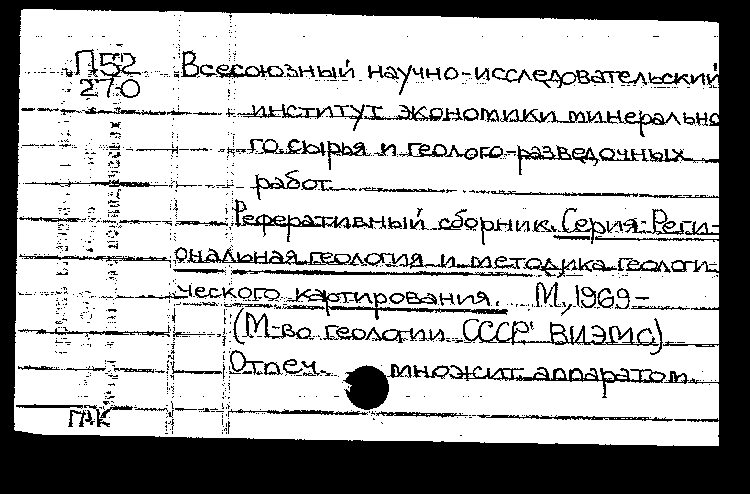 П52 Всесоюзный научно-исследовательский
270
институт экономики минерально
го сырья и геолого-разведочных
работ.
Реферативный сборник. Серия: Реги-
ональная геология и методика геологи-
ческого картирования. М., 1969-
(М-во геологии СССР ВИЭМС)
Отпеч. множит. аппаратом.
ГАК